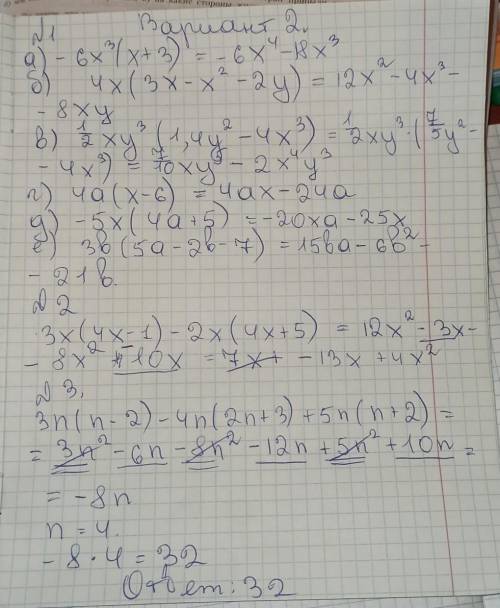 Вариант 2.
№1
а) -6x³(x+3) = -6x⁴-18x³
б) 4x(3x-x²-2y) = 12x²-4x³-
-8xy
в) ½xy³(1,4y²-4x³) = ½xy³·(7/5y²-
-4x³) = 7/10xy⁵-2x⁴y³
г) 4a(x-6) = 4ax-24a
д) -5x(4a+5) = -20xa-25x
е) 3в(5a-2в-7) = 15вa-6в²-
-21в.
№2
3x(4x-1)-2x(4x+5) = 12x²-3x-
-8x²-10x = 7x+ -13x+4x²
№3.
3n(n-2)-4n(2n+3)+5n(n+2)=
=3n²-6n-8n²-12n+5n²+10n=
=-8n
n=4.
-8·4=32
Ответ: 32